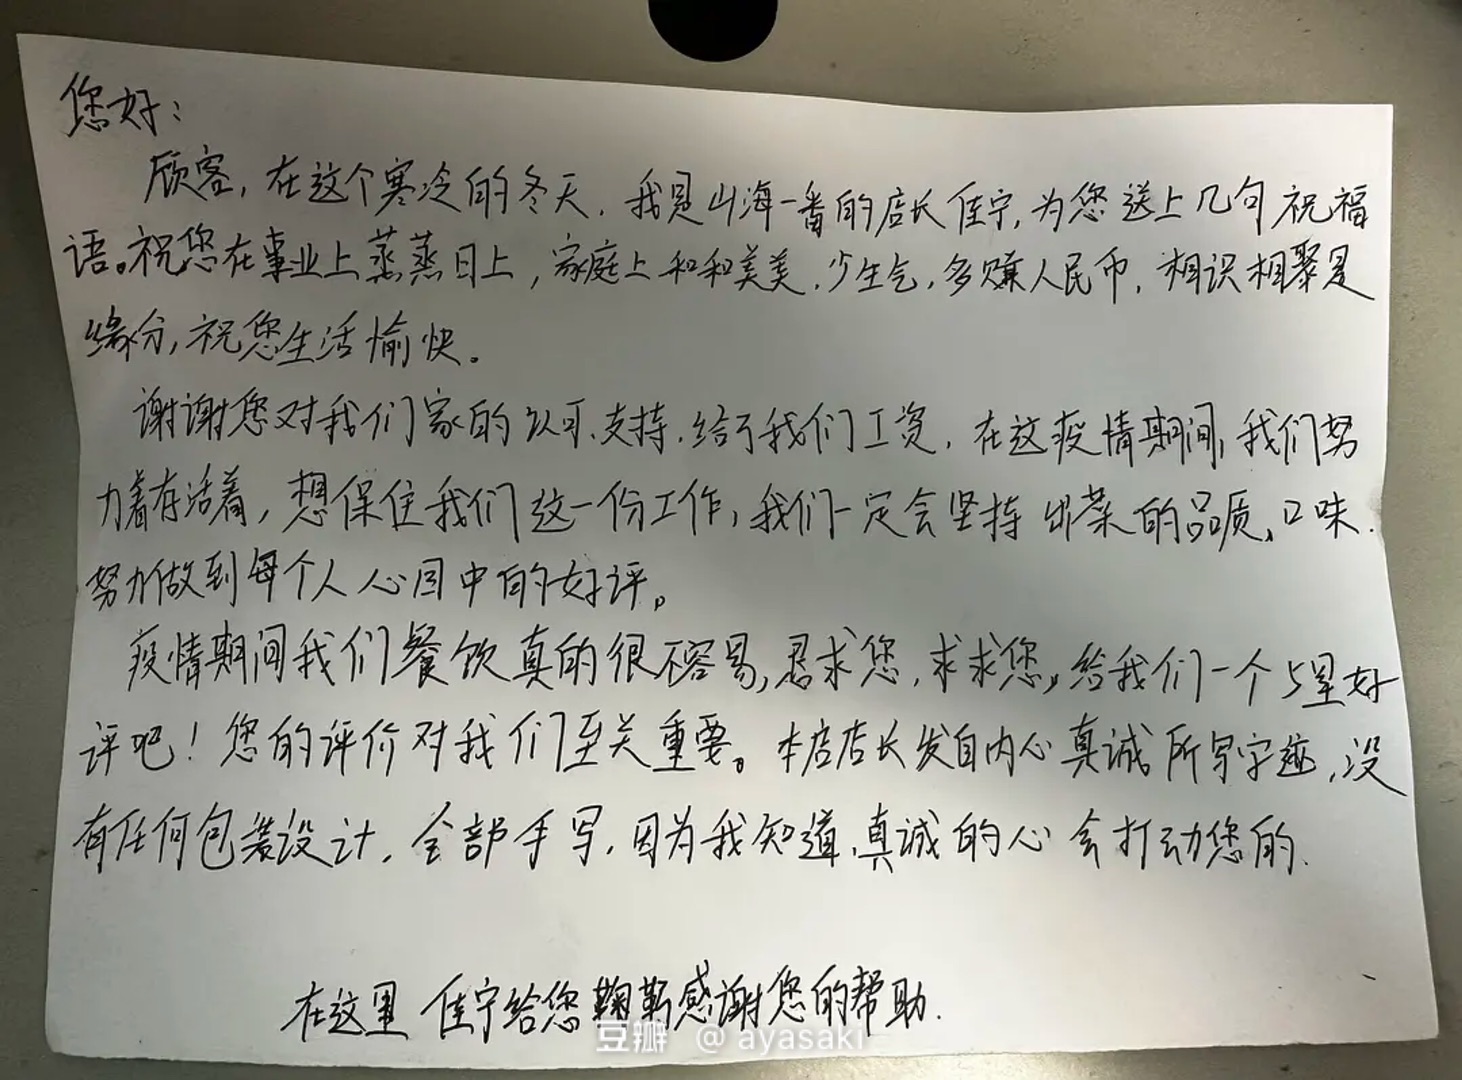 您好：
顾客，在这个寒冷的冬天，我是山海一番的店长佳宁，为您送上几句祝福
语。祝您在事业上蒸蒸日上，家庭上和和美美，少生气，多赚人民币，相识相聚是
缘分，祝您生活愉快。
谢谢您对我们家的认可、支持，给了我们工资，在这疫情期间，我们努
力着存活着，想保住我们这一份工作，我们一定会坚持出菜的品质、口味，
努力做到每个人心目中的好评。
疫情期间我们餐饮真的很不容易，恳求您，求求您，给我们一个5星好
评吧！您的评价对我们至关重要。本店店长发自内心真诚所写字迹，没
有任何包装设计，全部手写，因为我知道，真诚的心会打动您的。
在这里 佳宁给您鞠躬感谢您的帮助.
豆瓣 @ayasaki